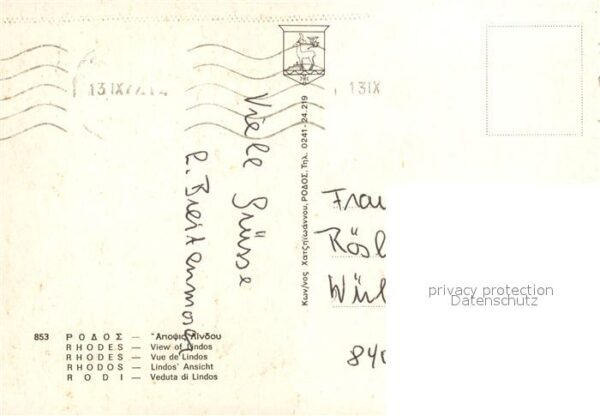 13IX77.14
13IX
Viele Grüsse
Κων/νος Χατζηϊωάννου, ΡΟΔΟΣ, Τηλ. 0241-24.219
Frau
Rösl
privacy protection
Datenschutz
853 ΡΟΔΟΣ — Ἄποψις Λίνδου
RHODES — View of Lindos
RHODES — Vue de Lindos
RHODOS — Lindos' Ansicht
RODI — Veduta di Lindos